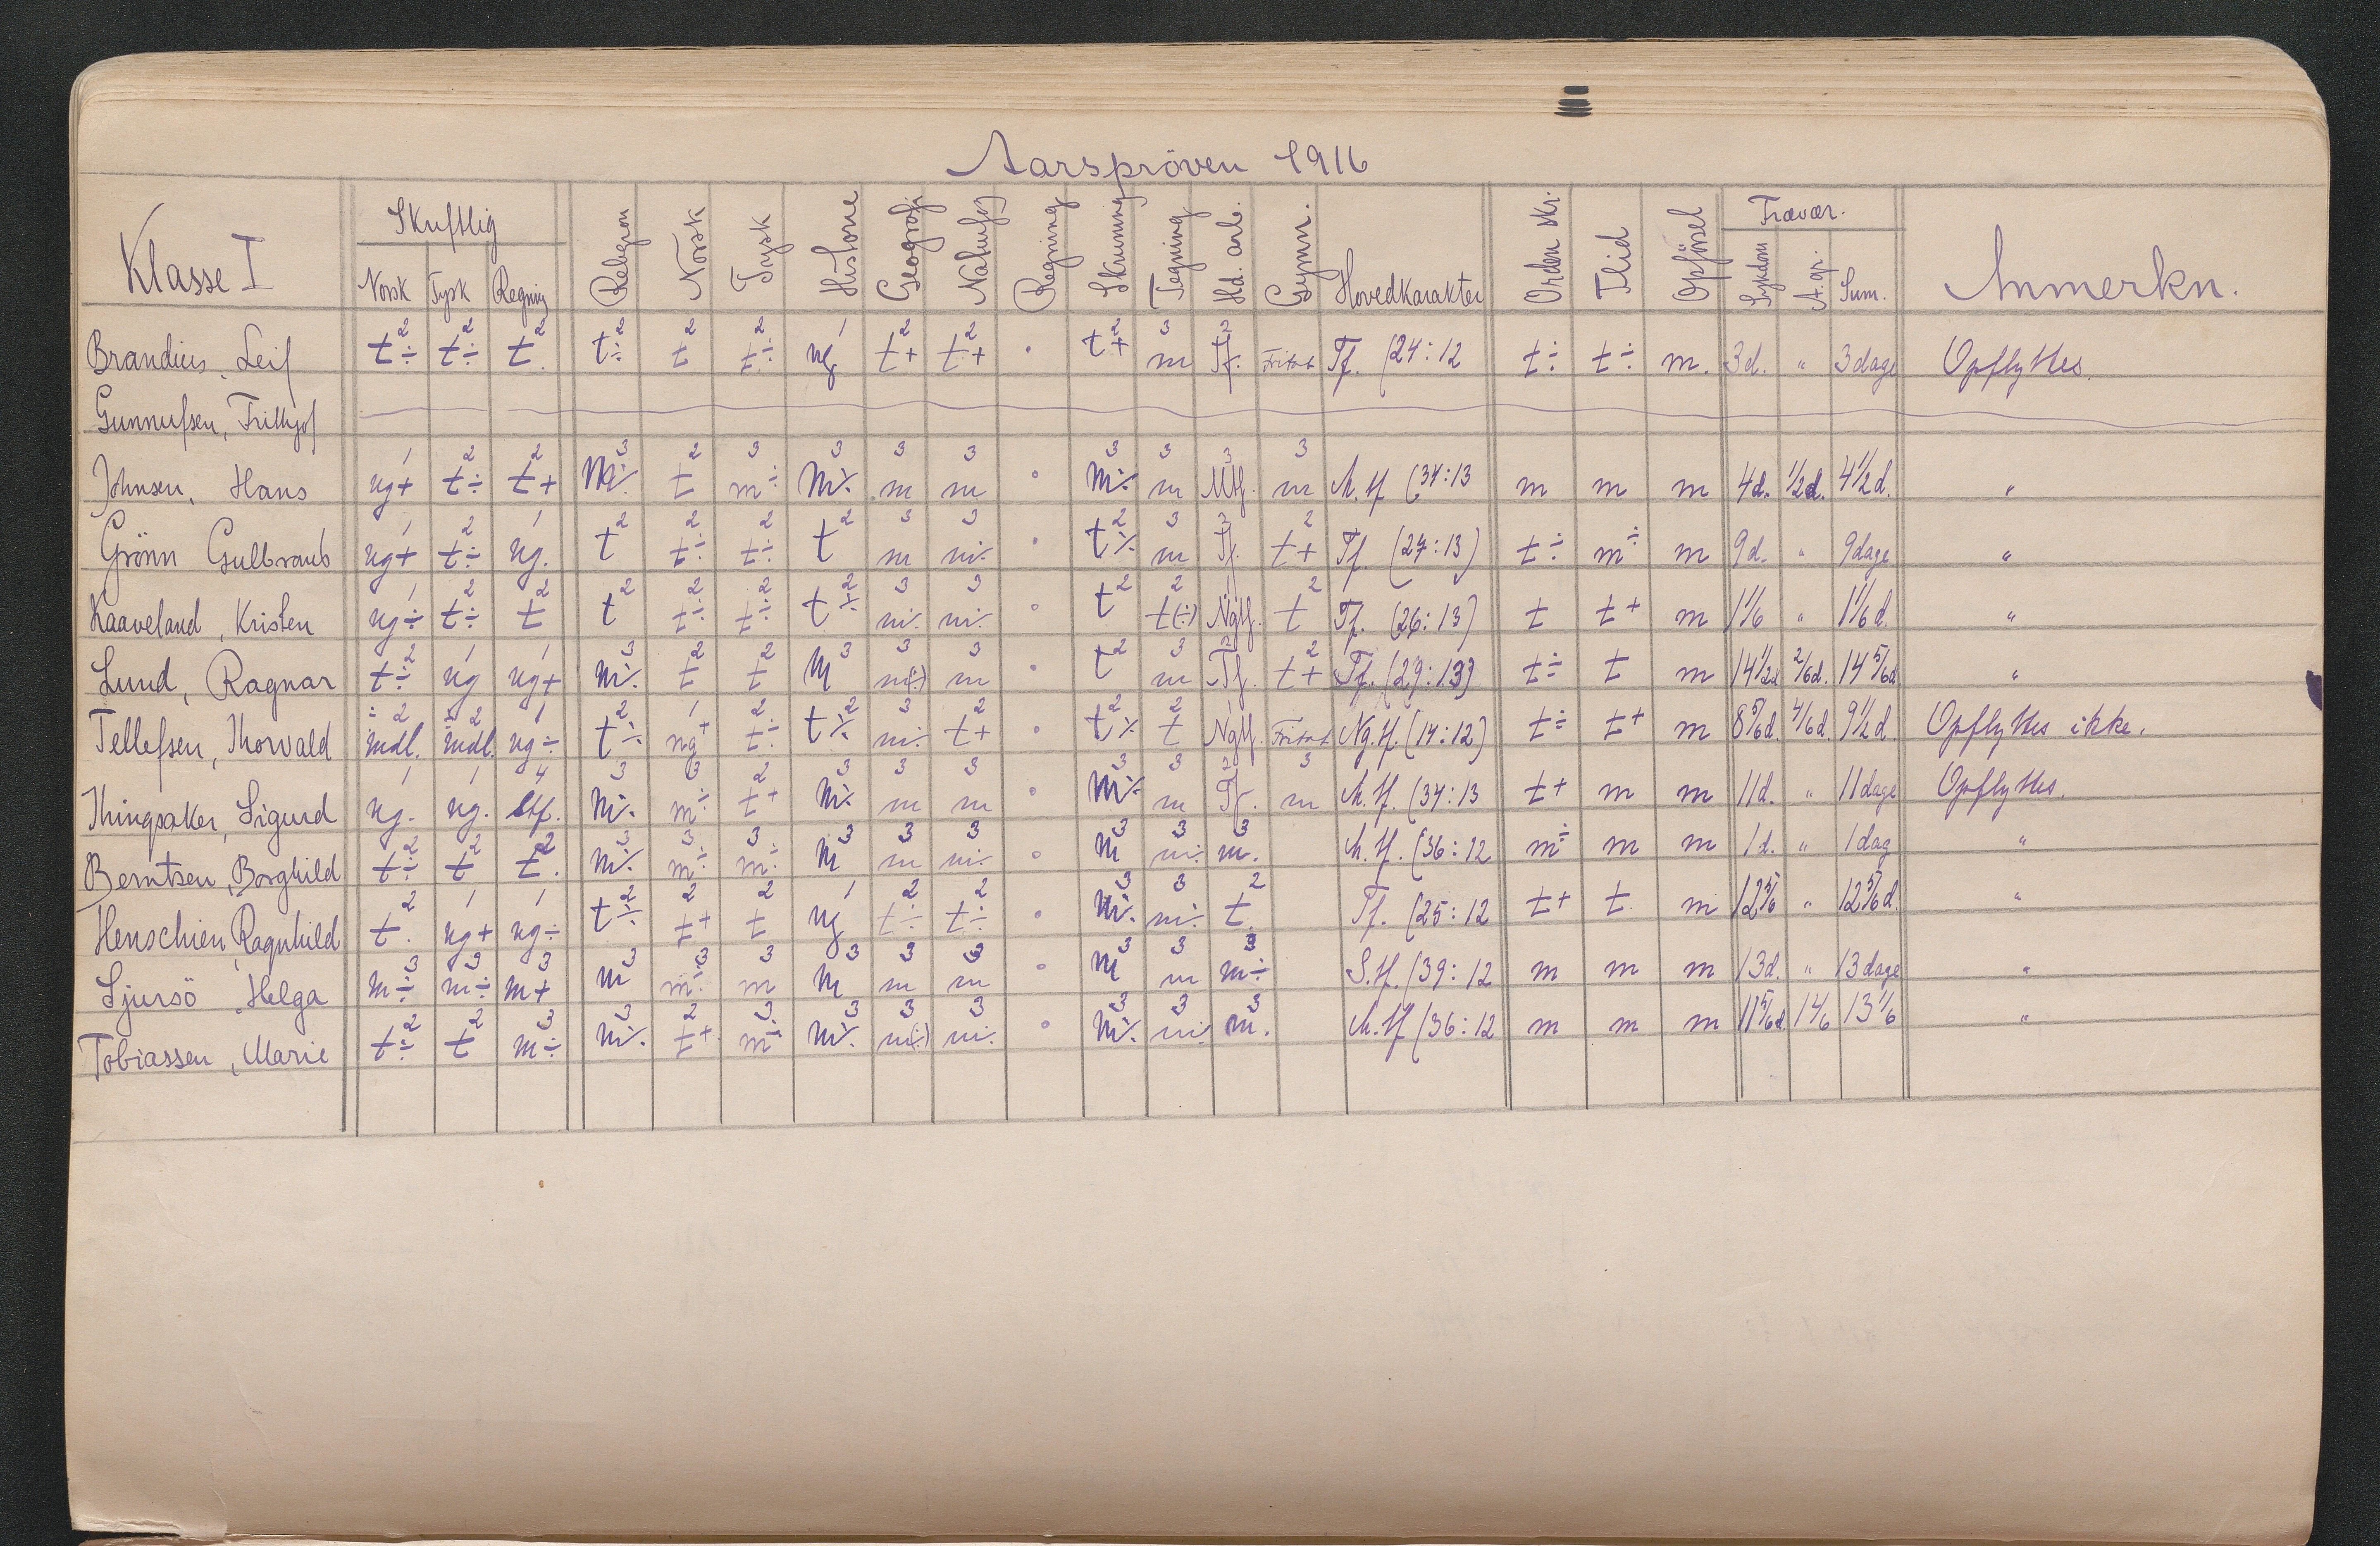 Aarspröven 1916
Klasse I Skriftlig Religion Norsk Tysk Historie Geografi Naturfag Regning Skrivning Tegning Hd. arb. Gymn. Hovedkarakter Orden skr. Flid Opförsel Fravær. Anmerkn.
Norsk Tysk Regning Sykdom A. gr. Sum.
Brandius, Leif t÷ 2 t÷ 2 t. 2 t÷ 2 t 2 t÷ 2 ng 1 t+ 2 t+ 2 · t+ 2 m 3 Tf. 2 Fritat Tf. (24:12 t÷ t÷ m. 3d. " 3 dage Opflyttes.
Gunnufsen, Frithjof
Johnsen, Hans ng+ 1 t÷ 2 t+ 2 M÷ 3 t 2 m÷ 3 M÷ 3 m 3 m 3 · M÷ 3 m 3 Mtf. 3 m 3 M.tf (34:13 m m m 4d. 1/2d. 4 1/2 d. "
Grönn Gulbrand ng+ 1 t÷ 2 ng. 1 t 2 t÷ 2 t÷ 2 t 2 m 3 m÷ 3 · t÷ 2 m 3 Tf. t+ 2 Tf. (27:13) t÷ m÷ m 9d. " 9 dage "
Kaaveland, Kristen ng÷ 1 t÷ 2 t 2 t 2 t÷ 2 t÷ 2 t÷ 2 m÷ 3 m÷ 3 · t 2 t(÷) 2 Ngtf. 1 t 2 Tf. (26:13) t t+ m 1 1/6 " 1 1/6 d. "
Lund, Ragnar t÷ 2 ng 1 ng+ 1 m÷ 3 t 2 t 2 M 3 m(÷) 3 m 3 · t 2 m 3 Tf. 2 t+ 2 Tf. (29:13) t÷ t m 14 1/2d 2/6d. 14 5/6d. "
Tellefsen, Thorvald mdl. ÷ 2 mdl. ÷ 2 ng÷ 1 t÷ 2 ng+ 1 t÷ 2 t÷ 2 m÷ 3 t+ 2 · t÷ 2 t 2 Ngtf. 1 Fritat Ng.tf. (14:12) t÷ t+ m 8 5/6d. 4/6d. 9 1/2 d. Opflyttes ikke.
Thingsaker, Sigurd ng. 1 ng. 1 4 M÷ 3 m÷ 3 t+ 2 M÷ 3 m 3 m 3 · M÷ 3 m 3 Tf. 2 m 3 M.tf. (34:13 t+ m m 11d. " 11 dage Opflyttes.
Berntsen, Borghild t÷ 2 t 2 t. 2 M÷ 3 m÷ 3 m÷ 3 M 3 m 3 m÷ 3 · M 3 m÷ 3 m. 3 M.tf. (36:12 m÷ m m 1d. " 1 dag "
Henschien, Ragnhild t. 2 ng+ 1 ng÷ 1 t÷ 2 t+ 2 t 2 ng 1 t÷ 2 t÷ 2 · M÷ 3 m÷ 3 t 2 Tf. (25:12 t+ t. m 12 5/6 " 12 5/6 d. "
Sjursö, Helga m÷ 3 m÷ 3 m+ 3 m 3 m÷ 3 m 3 M 3 m 3 m 3 · M 3 m 3 m÷ 3 (39:12 m m m 13d. " 13 dage "
Tobiassen, Marie t÷ 2 t 2 m÷ 3 m÷ 3 t+ 2 m÷ 3 M÷ 3 m(÷) 3 m÷ 3 · M÷ 3 m÷ 3 m. 3 M.tf (36:12 m m m 11 5/6d 1 4/6 13 1/6 "